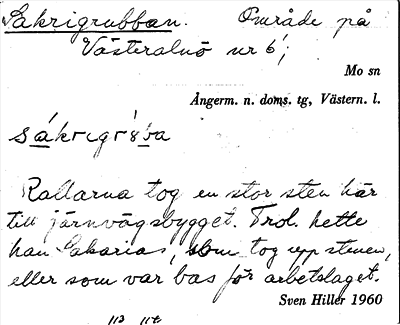 Sakrigrubban. Område på
Västeralnö nr 6;
Mo sn
Ångerm. n. doms. tg, Västern. l.
Rallarna tog en stor sten här
till järnvägsbygget. Trol. hette
han Sakarias, som tog upp stenen,
eller som var bas för arbetslaget.
Sven Hiller 1960